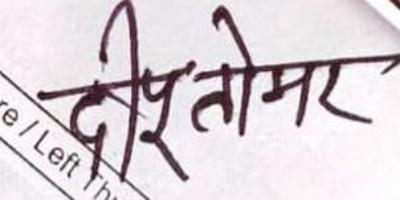 दीप तोमर
re / Left Th